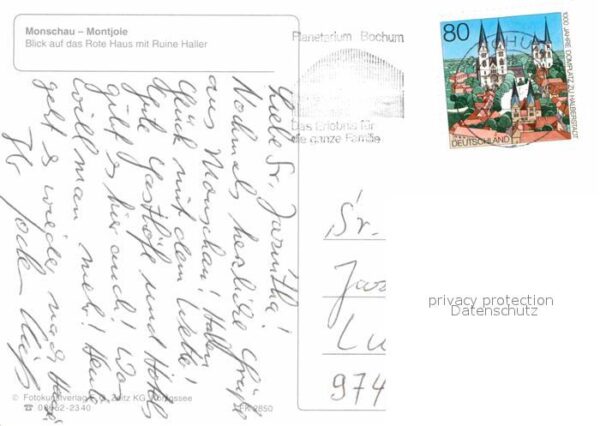 Monschau – Montjoie
Blick auf das Rote Haus mit Ruine Haller
Planetarium Bochum
Das Erlebnis für
die ganze Familie
80
1000 JAHRE DOMPLATZ ZU HALBERSTADT
DEUTSCHLAND
BOCHUM
Liebe Sr. Jacintha!
Nochmals herzliche Grüße
aus Monschau! Hatten
Glück mit dem Wetter!
Gute Gasthöfe und Hotels
gibt es hier auch! Was
will man mehr! Heute
geht es wieder nach Hause!
Ihr
Sr.
Jac
Lu
974
privacy protection
Datenschutz
© Fotokunstverlag
Zeitz KG Königssee
☎ 08652-2340
2850